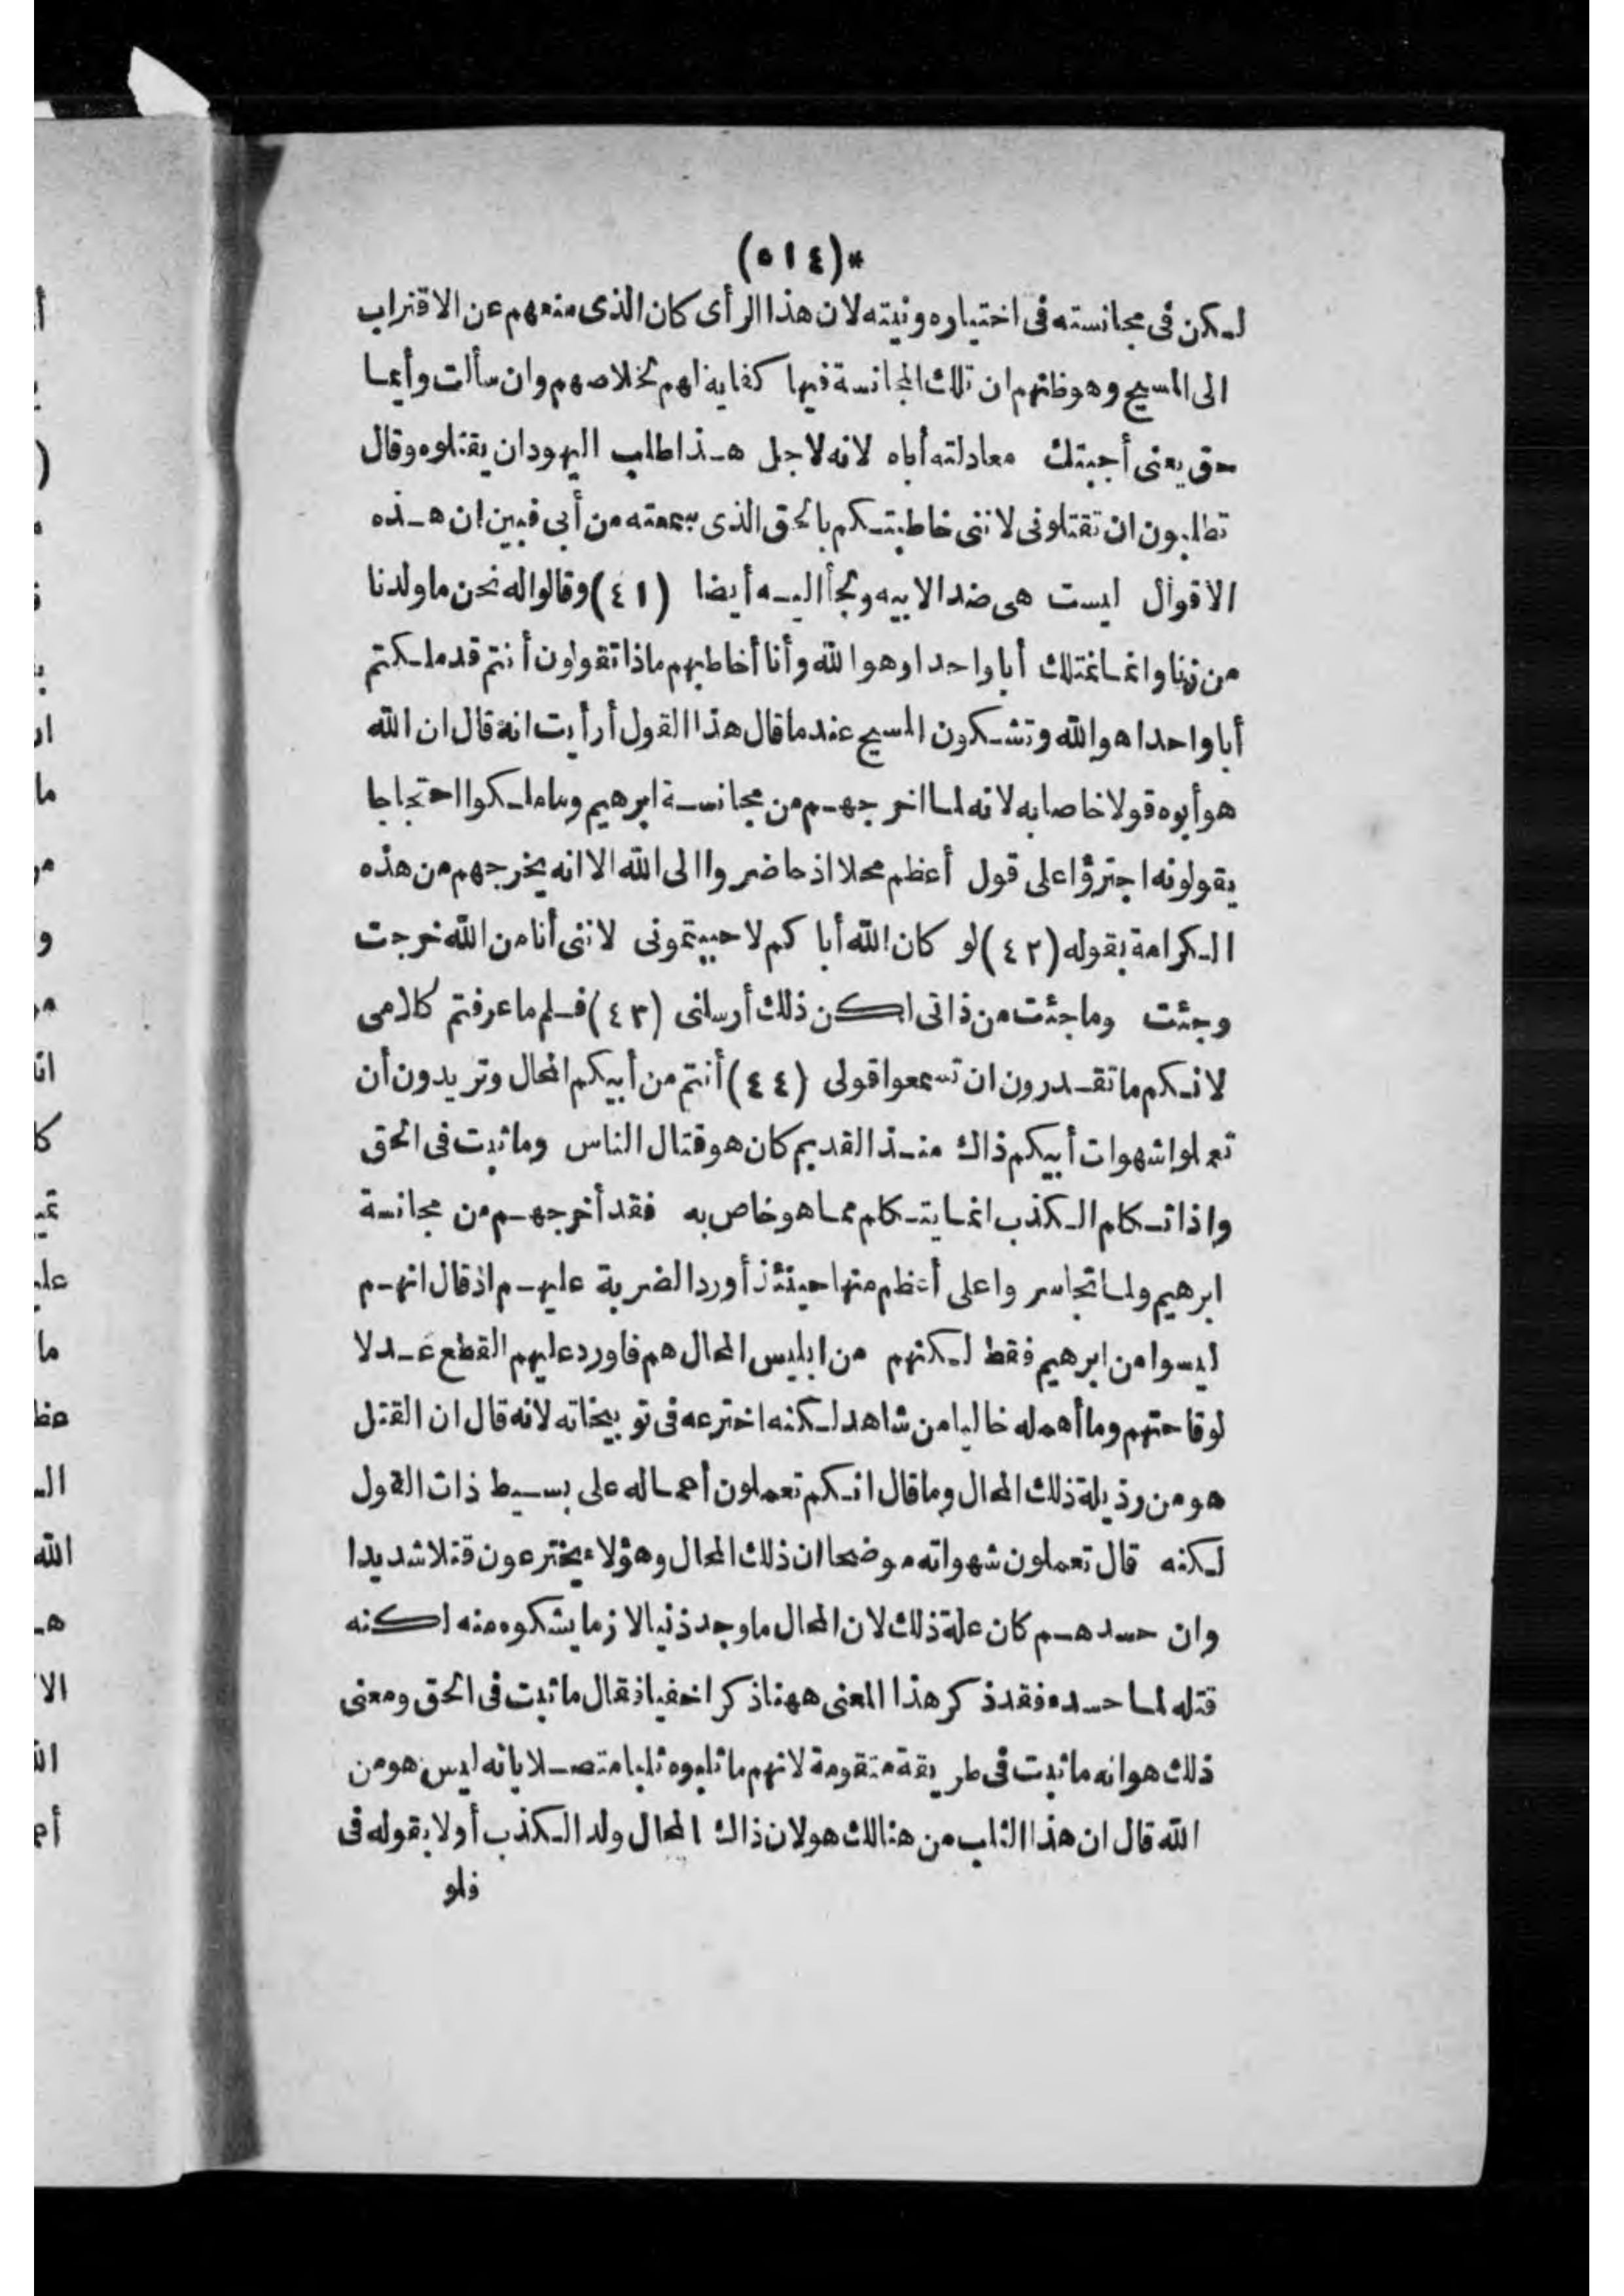 *(٥١٤)
لكن فى مجانسته فى اختياره ونيته لان هذا الرأى كان الذى منعهم عن الاقتراب
الى المسيح وهو ظنهم ان تلك المجانسة فيها كفاية لهم لخلاصهم وان سألت وأيما
حق يعنى أجبتك معادلته أباه لانه لاجل هذا طلب اليهود ان يقتلوه وقال
تطلبون ان تقتلونى لاننى خاطبتكم بالحق الذى سمعته من أبى فبين ان هذه
الاقوال ليست هى ضد الابيه ولجأ اليه أيضا (٤١) وقالوا له نحن ما ولدنا
من زنا وانما نمتلك أبا واحدا وهو الله وأنا أخاطبهم ماذا تقولون أنتم قد ملكتم
أبا واحدا هو الله وتشكون المسيح عندما قال هذا القول أرأيت انه قال ان الله
هو أبوه قولا خاصا به لانه لما اخرجهم من مجانسة ابرهيم وما ملكوا احتجاجا
يقولونه اجترؤا على قول أعظم محلا اذ حاضروا الى الله الا انه يخرجهم من هذه
الكرامة بقوله (٤٢) لو كان الله أباكم لاحببتمونى لاننى أنا من الله خرجت
وجئت وما جئت من ذاتى لكن ذلك أرسلنى (٤٣) فلم ما عرفتم كلامى
لانكم ما تقدرون ان تسمعوا قولى (٤٤) أنتم من أبيكم المحال وتريدون أن
تعملوا شهوات أبيكم ذاك منذ القديم كان هو قتال الناس وما ثبت فى الحق
واذا تكلم الكذب انما يتكلم مما هو خاص به فقد أخرجهم من مجانسة
ابرهيم ولما تجاسروا على أعظم منها حينئذ أورد الضربة عليهم اذ قال انهم
ليسوا من ابرهيم فقط لكنهم من ابليس المحال هم فاورد عليهم القطع عدلا
لوقاحتهم وما أهمله خاليا من شاهد لكنه اخترعه فى توبيخاته لانه قال ان القتل
هو من رذيلة ذلك المحال وما قال انكم تعملون أعماله على بسيط ذات القول
لكنه قال تعملون شهواته موضحا ان ذلك المحال وهؤلاء يخترعون قتلا شديدا
وان حسدهم كان علة ذلك لان المحال ما وجد ذنبا لازما يشكوه منه لكنه
قتله لما حسده فقد ذكر هذا المعنى ههنا ذكرا خفيا فقال ما ثبت فى الحق ومعنى
ذلك هو انه ما ثبت فى طريقة متقومة لانهم ما ثلبوه ثلبا متصلا بانه ليس هو من
الله قال ان هذا الثلب من هنالك هو لان ذاك المحال ولد الكذب أولا بقوله فى
فلو